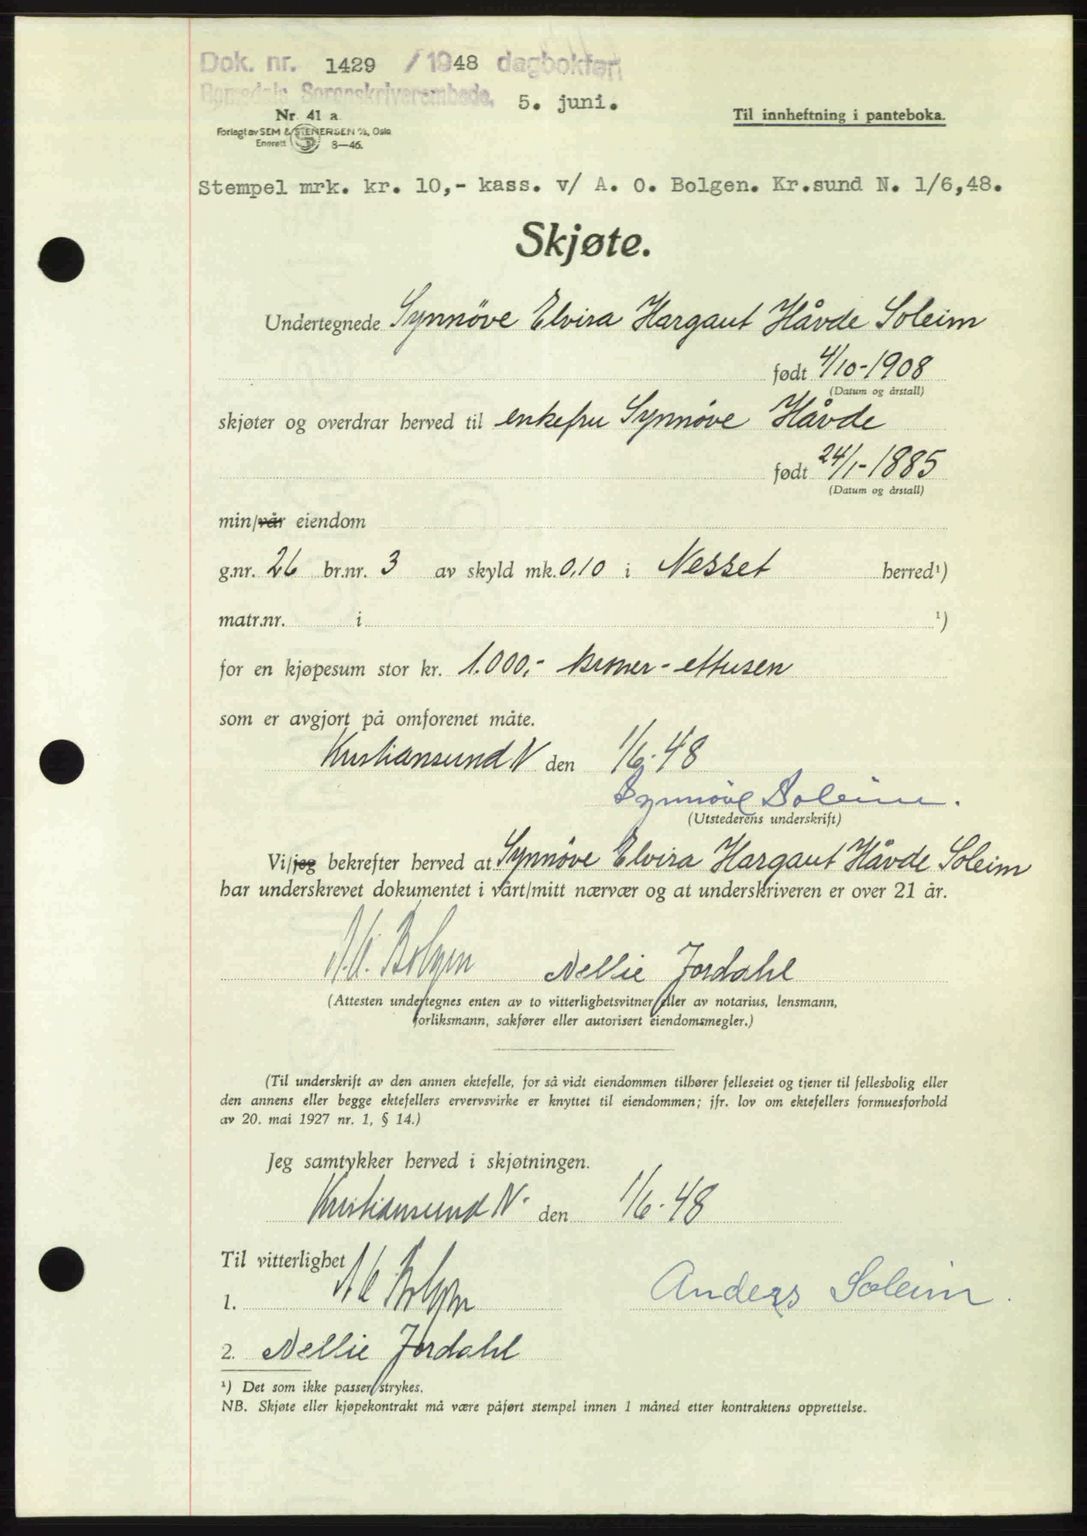 Dok. nr. 1429 / 1948 dagbokført
Romsdals Sorenskriverembede, 5. juni.
Nr. 41 a
Til innheftning i panteboka.
Forlagt av SEM & STENERSEN A/S, Oslo
Enerett 8—46.
Stempel mrk. kr. 10,- kass. v/ A. O. Bolgen. Kr.sund N. 1/6,48.
Skjøte.
Undertegnede Synnøve Elvira Hargaut Håvde Soleim
født 4/10-1908
(Datum og årstall)
skjøter og overdrar herved til enkefru Synnøve Håvde
født 24/1-1885
(Datum og årstall)
min/vår eiendom
g.nr. 26 br.nr. 3 av skyld mk. 0,10 i Nesset herred¹)
matr.nr. i ¹)
for en kjøpesum stor kr. 1.000,- kroner-ettusen
som er avgjort på omforenet måte.
Kristiansund N den 1/6-48
Synnøve Soleim.
(Utstederens underskrift)
Vi/jeg bekrefter herved at Synnøve Elvira Hargaut Håvde Soleim
har underskrevet dokumentet i vårt/mitt nærvær og at underskriveren er over 21 år.
A.O. Bolgen Nellie Jordahl
(Attesten undertegnes enten av to vitterlighetsvitner eller av notarius, lensmann,
forliksmann, sakfører eller autorisert eiendomsmegler.)
(Til underskrift av den annen ektefelle, for så vidt eiendommen tilhører felleseiet og tjener til fellesbolig eller
den annens eller begge ektefellers ervervsvirke er knyttet til eiendommen; jfr. lov om ektefellers formuesforhold
av 20. mai 1927 nr. 1, § 14.)
Jeg samtykker herved i skjøtningen.
Kristiansund N. den 1/6-48
Til vitterlighet
1. A O Bolgen Anders Soleim.
2. Nellie Jordahl
¹) Det som ikke passer strykes.
NB. Skjøte eller kjøpekontrakt må være påført stempel innen 1 måned etter kontraktens opprettelse.